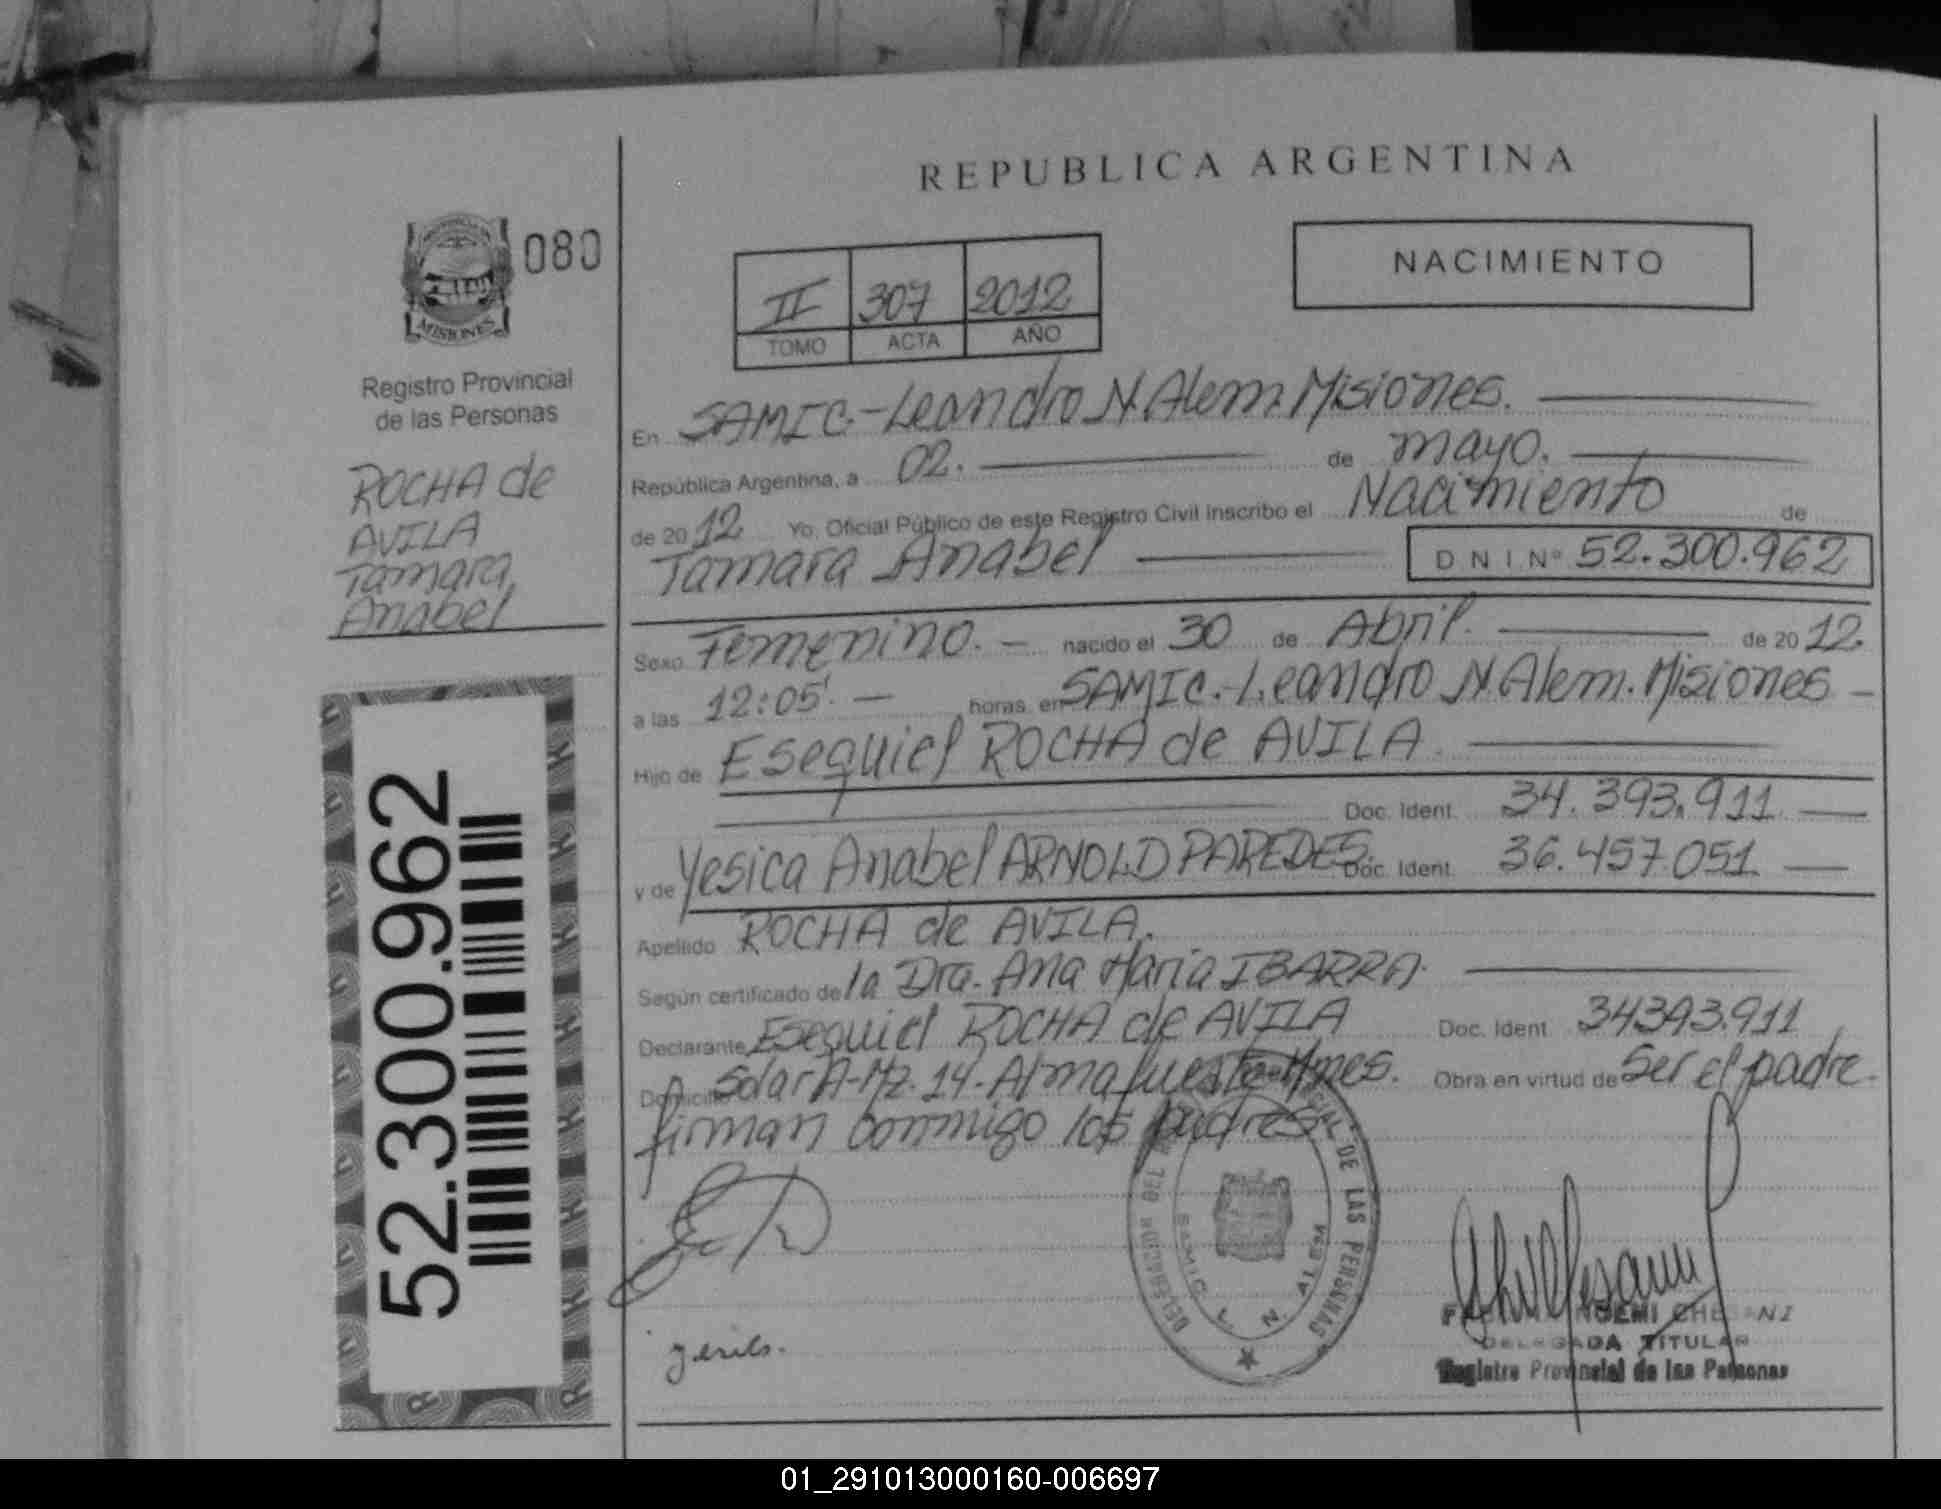 REPUBLICA ARGENTINA
080
MISIONES
Registro Provincial
de las Personas
ROCHA de
AVILA
Tamara
Anabel
52.300.962
II 307 2012
TOMO ACTA AÑO
NACIMIENTO
En SAMIC-Leandro N. Alem. Misiones.
República Argentina, a 02. de mayo.
de 20 12 Yo, Oficial Público de este Registro Civil inscribo el Nacimiento de
Tamara Anabel D N I Nº 52.300.962
Sexo Femenino. - nacido el 30 de Abril. de 20 12.
a las 12:05'. - horas, en SAMIC.-Leandro N. Alem. Misiones -
Hijo de Esequiel ROCHA de AVILA.
Doc. Ident. 34.393.911
y de Yesica Anabel ARNOLD PAREDES. Doc. Ident. 36.457.051
Apellido ROCHA de AVILA.
Según certificado de la Dra. Ana Maria IBARRA.
Declarante Esequiel ROCHA de AVILA Doc. Ident. 34393.911
Domicilio Solar A-Mz. 14-Almafuerte-Mnes. Obra en virtud de Ser el padre.
firman conmigo los padres
DE LAS PERSONAS
SAMIC L. N. ALEM
NOEMI
DELEGADA TITULAR
Registro Provincial de las Personas
01_291013000160-006697